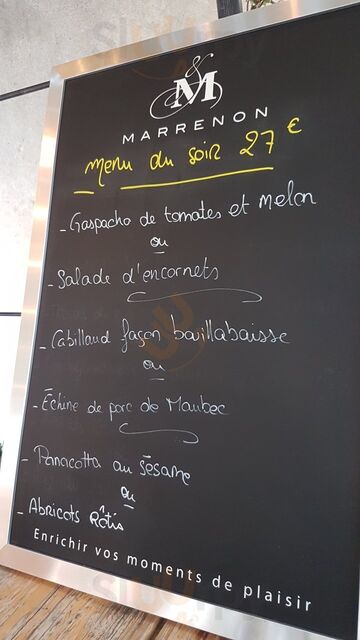 & M
MARRENON
Menu du soir 27 €
- Gaspacho de tomates et Melon
ou
- Salade d'encornets
- Cabillaud façon bouillabaisse
ou
- Échine de porc de Maubec
- Panacotta au sésame
ou
- Abricots Rôtis
Enrichir vos moments de plaisir